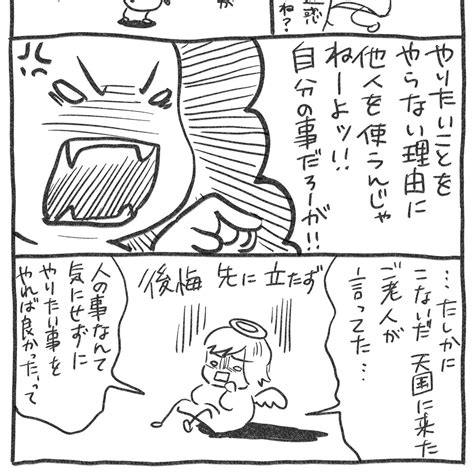 迷惑
ね?
が
やりたいことを
やらない理由に
他人を使うんじゃ
ねーよッ!!
自分の事だろーが!!
…たしかに
こないだ 天国に来た
ご老人が
言ってた…
後悔 先に立たず
人の事なんて
気にせずに
やりたい事を
やれば良かったって